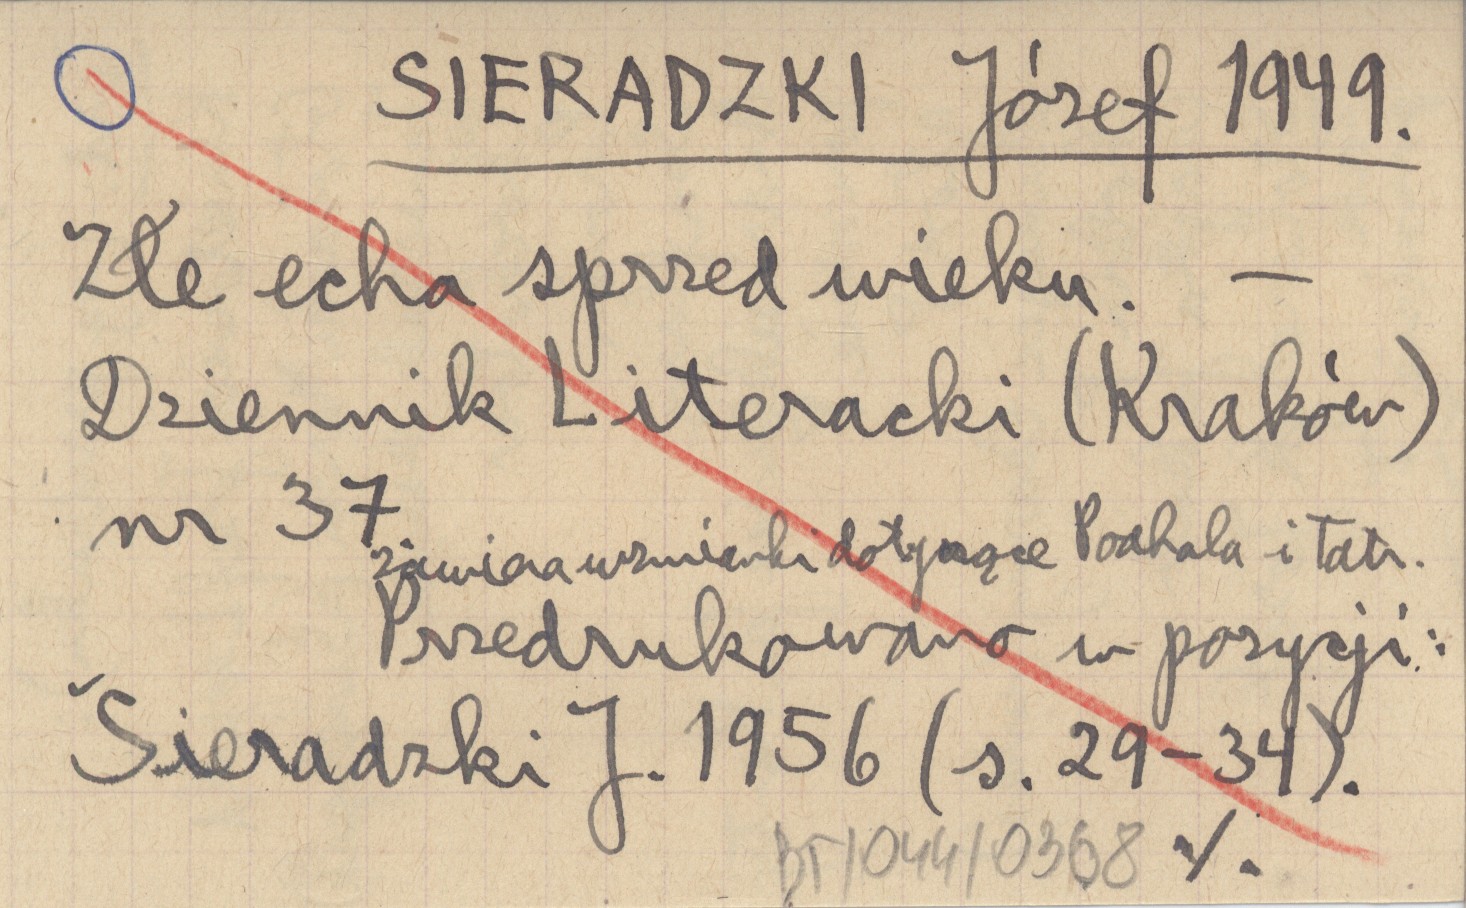 SIERADZKI Józef 1949.
Złe echa sprzed wieku. —
Dziennik Literacki (Kraków)
nr 37
zawiera wzmianki dotyczące Podhala i Tatr.
Przedrukowano w pozycji:
Sieradzki J. 1956 (s. 29-34).
BT/044/0368 ./.